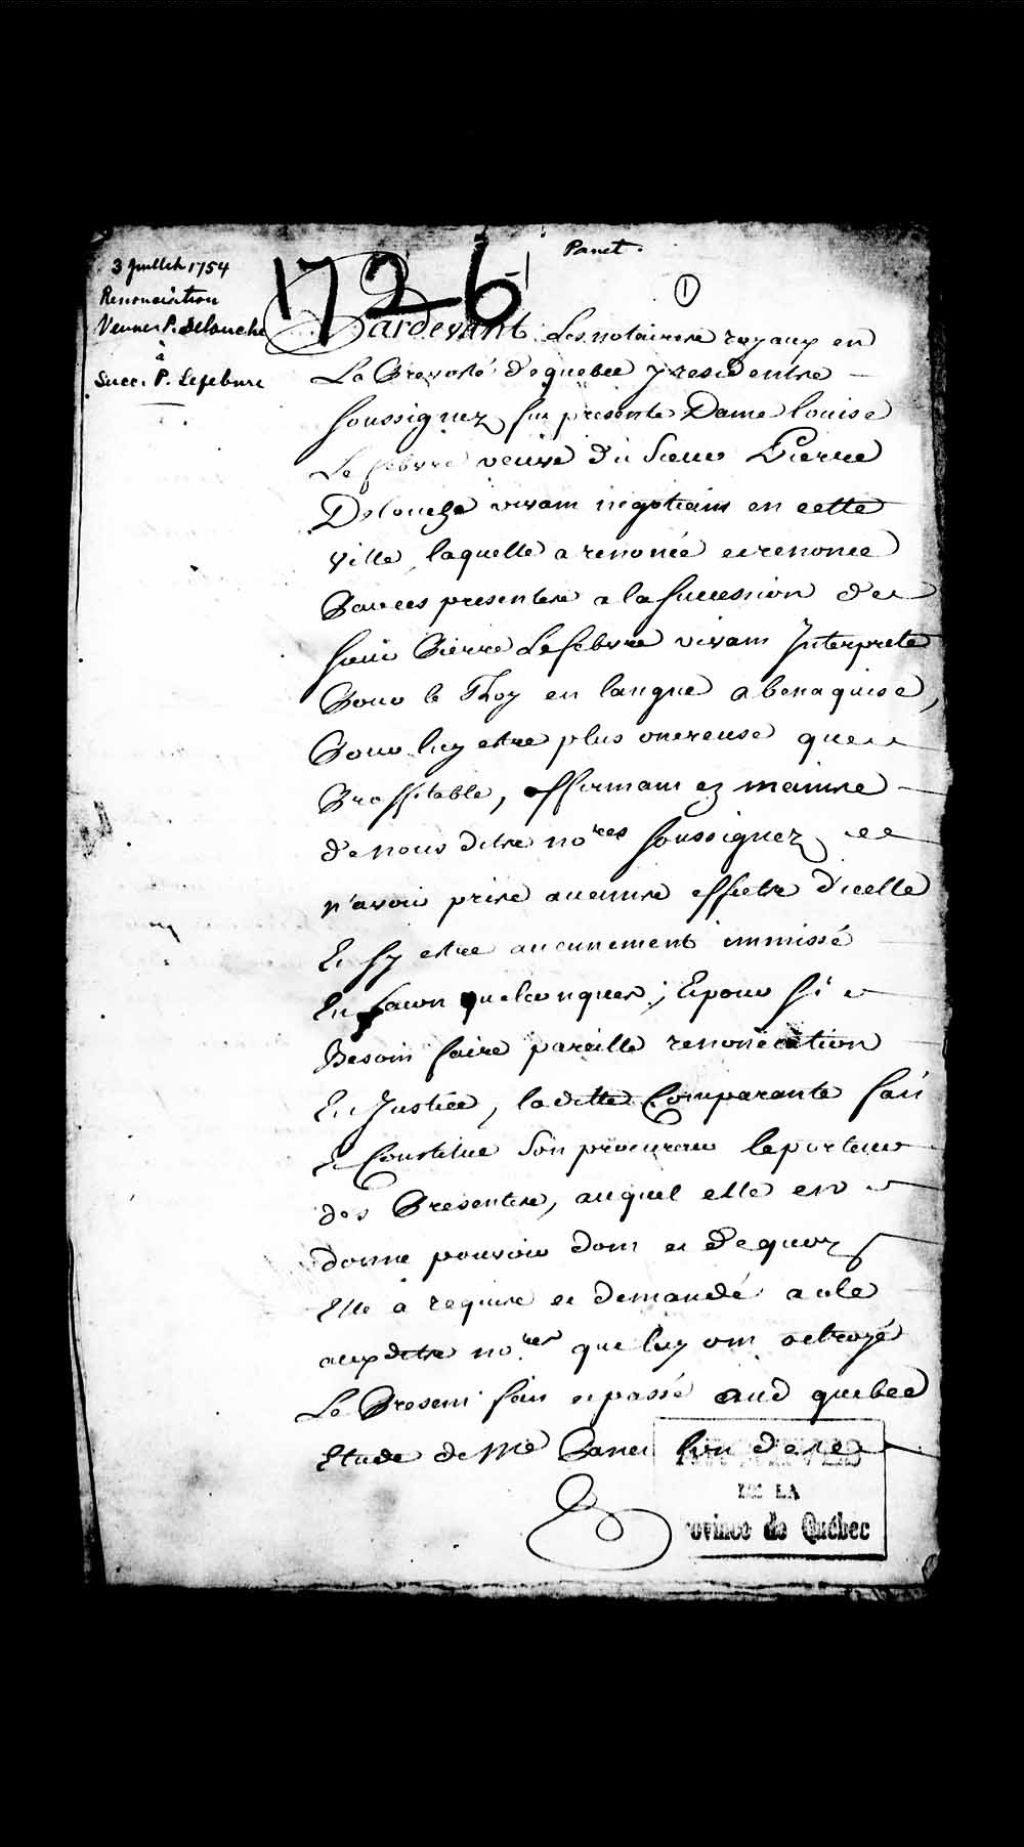 Panet.
1726-1
①
3 Juillet 1754
Renonciation
Veuve P. Delouche
à
Succ. P. Lefebvre
Pardevant Les notaires royaux en
La Prevosté de quebec y residents
soussignez fut presente Dame louise
Le febvre veuve du Sieur Pierre
Delouche vivant negotiant en cette
ville, laquelle a renoncé et renonce
Par ces presentes a la succession de
sieur Pierre Lefebvre vivant Interprete
Pour le Roy en langue abenaquise,
Pour luy estre plus onereuse que
Proffitable, affirmant ez mains
de nous dits no.res soussignez
n'avoir pris aucuns effets d'icelle
Et sy estre aucunement immissé
En facon quelconques; Et pour si
Besoin faire pareille renonciation
En Justice, la ditte Comparante fait
Et Constitue son procureur le porteur
des Presentes, auquel elle en
donne pouvoir dont et de quoy
Elle a requis et demandé acte
auxdits no.res que luy ont octroyé
Le Present fait et passé aud quebec
Etude de Me Panet
DE LA
rovince de Québec